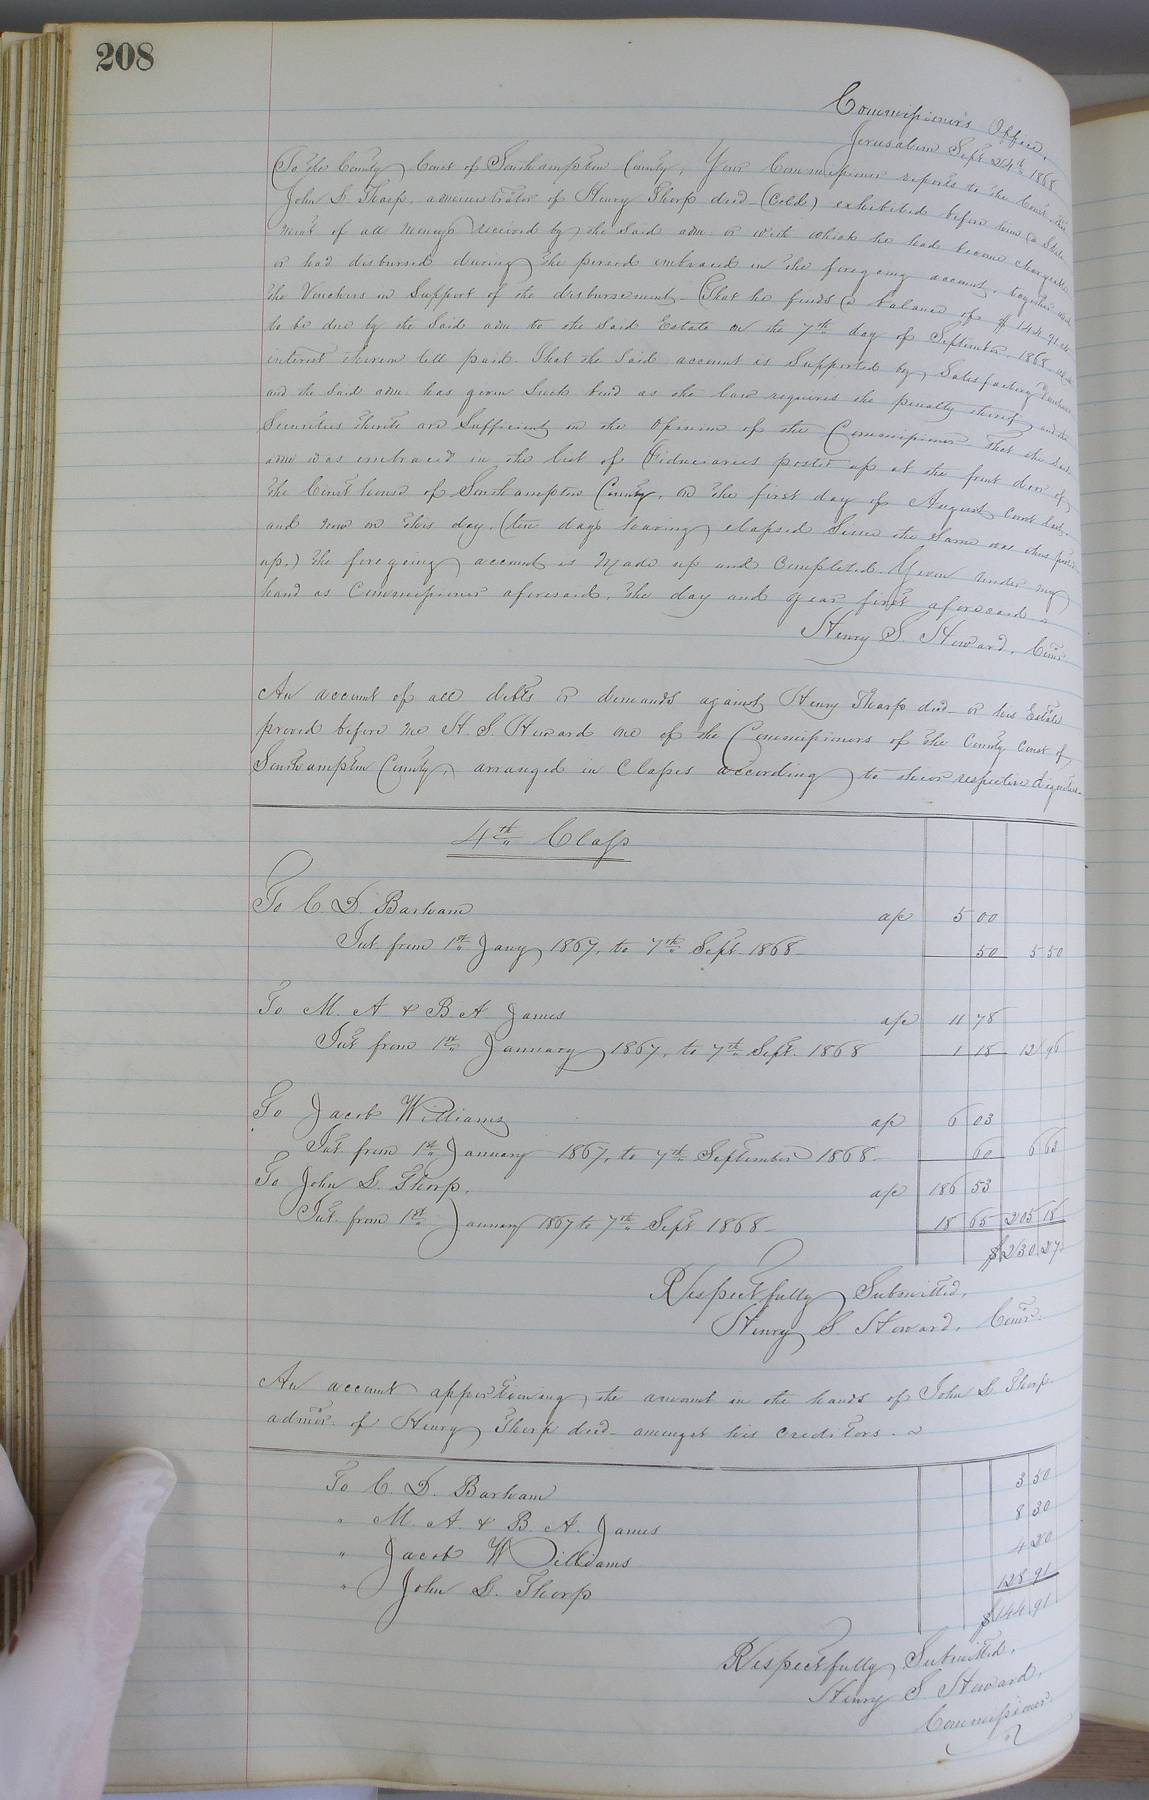 208
Commissioner's Office,
Jerusalem Sept 24th 1868
To the County Court of Southampton County, Your Commissioner reports to the Court, that
John L. Thorp, administrator of Henry Thorp decd (Cold) exhibited before him a State-
ment of all moneys received by the said adm. or with which he had become chargeable
or had disbursed during the period embraced in the foregoing account, together with
the Vouchers in Support of the disbursement. That he finds a balance of $144.91 cts
to be due by the Said adm to the Said Estate on the 7th day of September 1868 with
interest thereon till paid. That the Said account is Supported by Satisfactory Vouchers
and the Said adm. has given Such bond as the law requires the penalty thereof and the
Securities thereto are Sufficient in the Opinion of the Commissioner. That the Said
adm was embraced in the list of Fiduciaries posted up at the front door of
the Court house of Southampton County, on the first day of August Court last,
and now on this day, (ten days having elapsed Since the Same was thus posted
up.) the foregoing account is Made up and Completed. Given Under my
hand as Commissioner aforesaid, the day and year first aforesaid.
Henry S. Howard, Comr.
An account of all debts or demands against Henry Thorp decd or his Estate
proved before me H. S. Howard one of the Commissioners of the County Court of
Southampton County, arranged in Classes according to their respective dignities.
4th Class
To C. D. Barham a/c 5 00
Int. from 1st Jany 1867, to 7th Sept 1868 50 5 50
To M. A & B A James a/c 11 78
Int from 1st January 1867, to 7th Sept. 1868 1 18 12 96
To Jacob Williams a/c 6 03
Int from 1st January 1867, to 7th September 1868 60 6 63
To John L. Thorp, a/c 186 53
Int. from 1st January 1867 to 7th Sept 1868 18 65 205 18
$230.27
Respectfully Submitted,
Henry S Howard, Comr.
An account apportioning the amount in the hands of John L. Thorp
admor. of Henry Thorp decd amongst his creditors.
To C. D. Barham 3 50
" M. A. & B. A. James 8 30
" Jacob Williams 4 20
" John L. Thorp 128 91
$144 91
Respectfully Submitted,
Henry S Howard,
Commissioner.